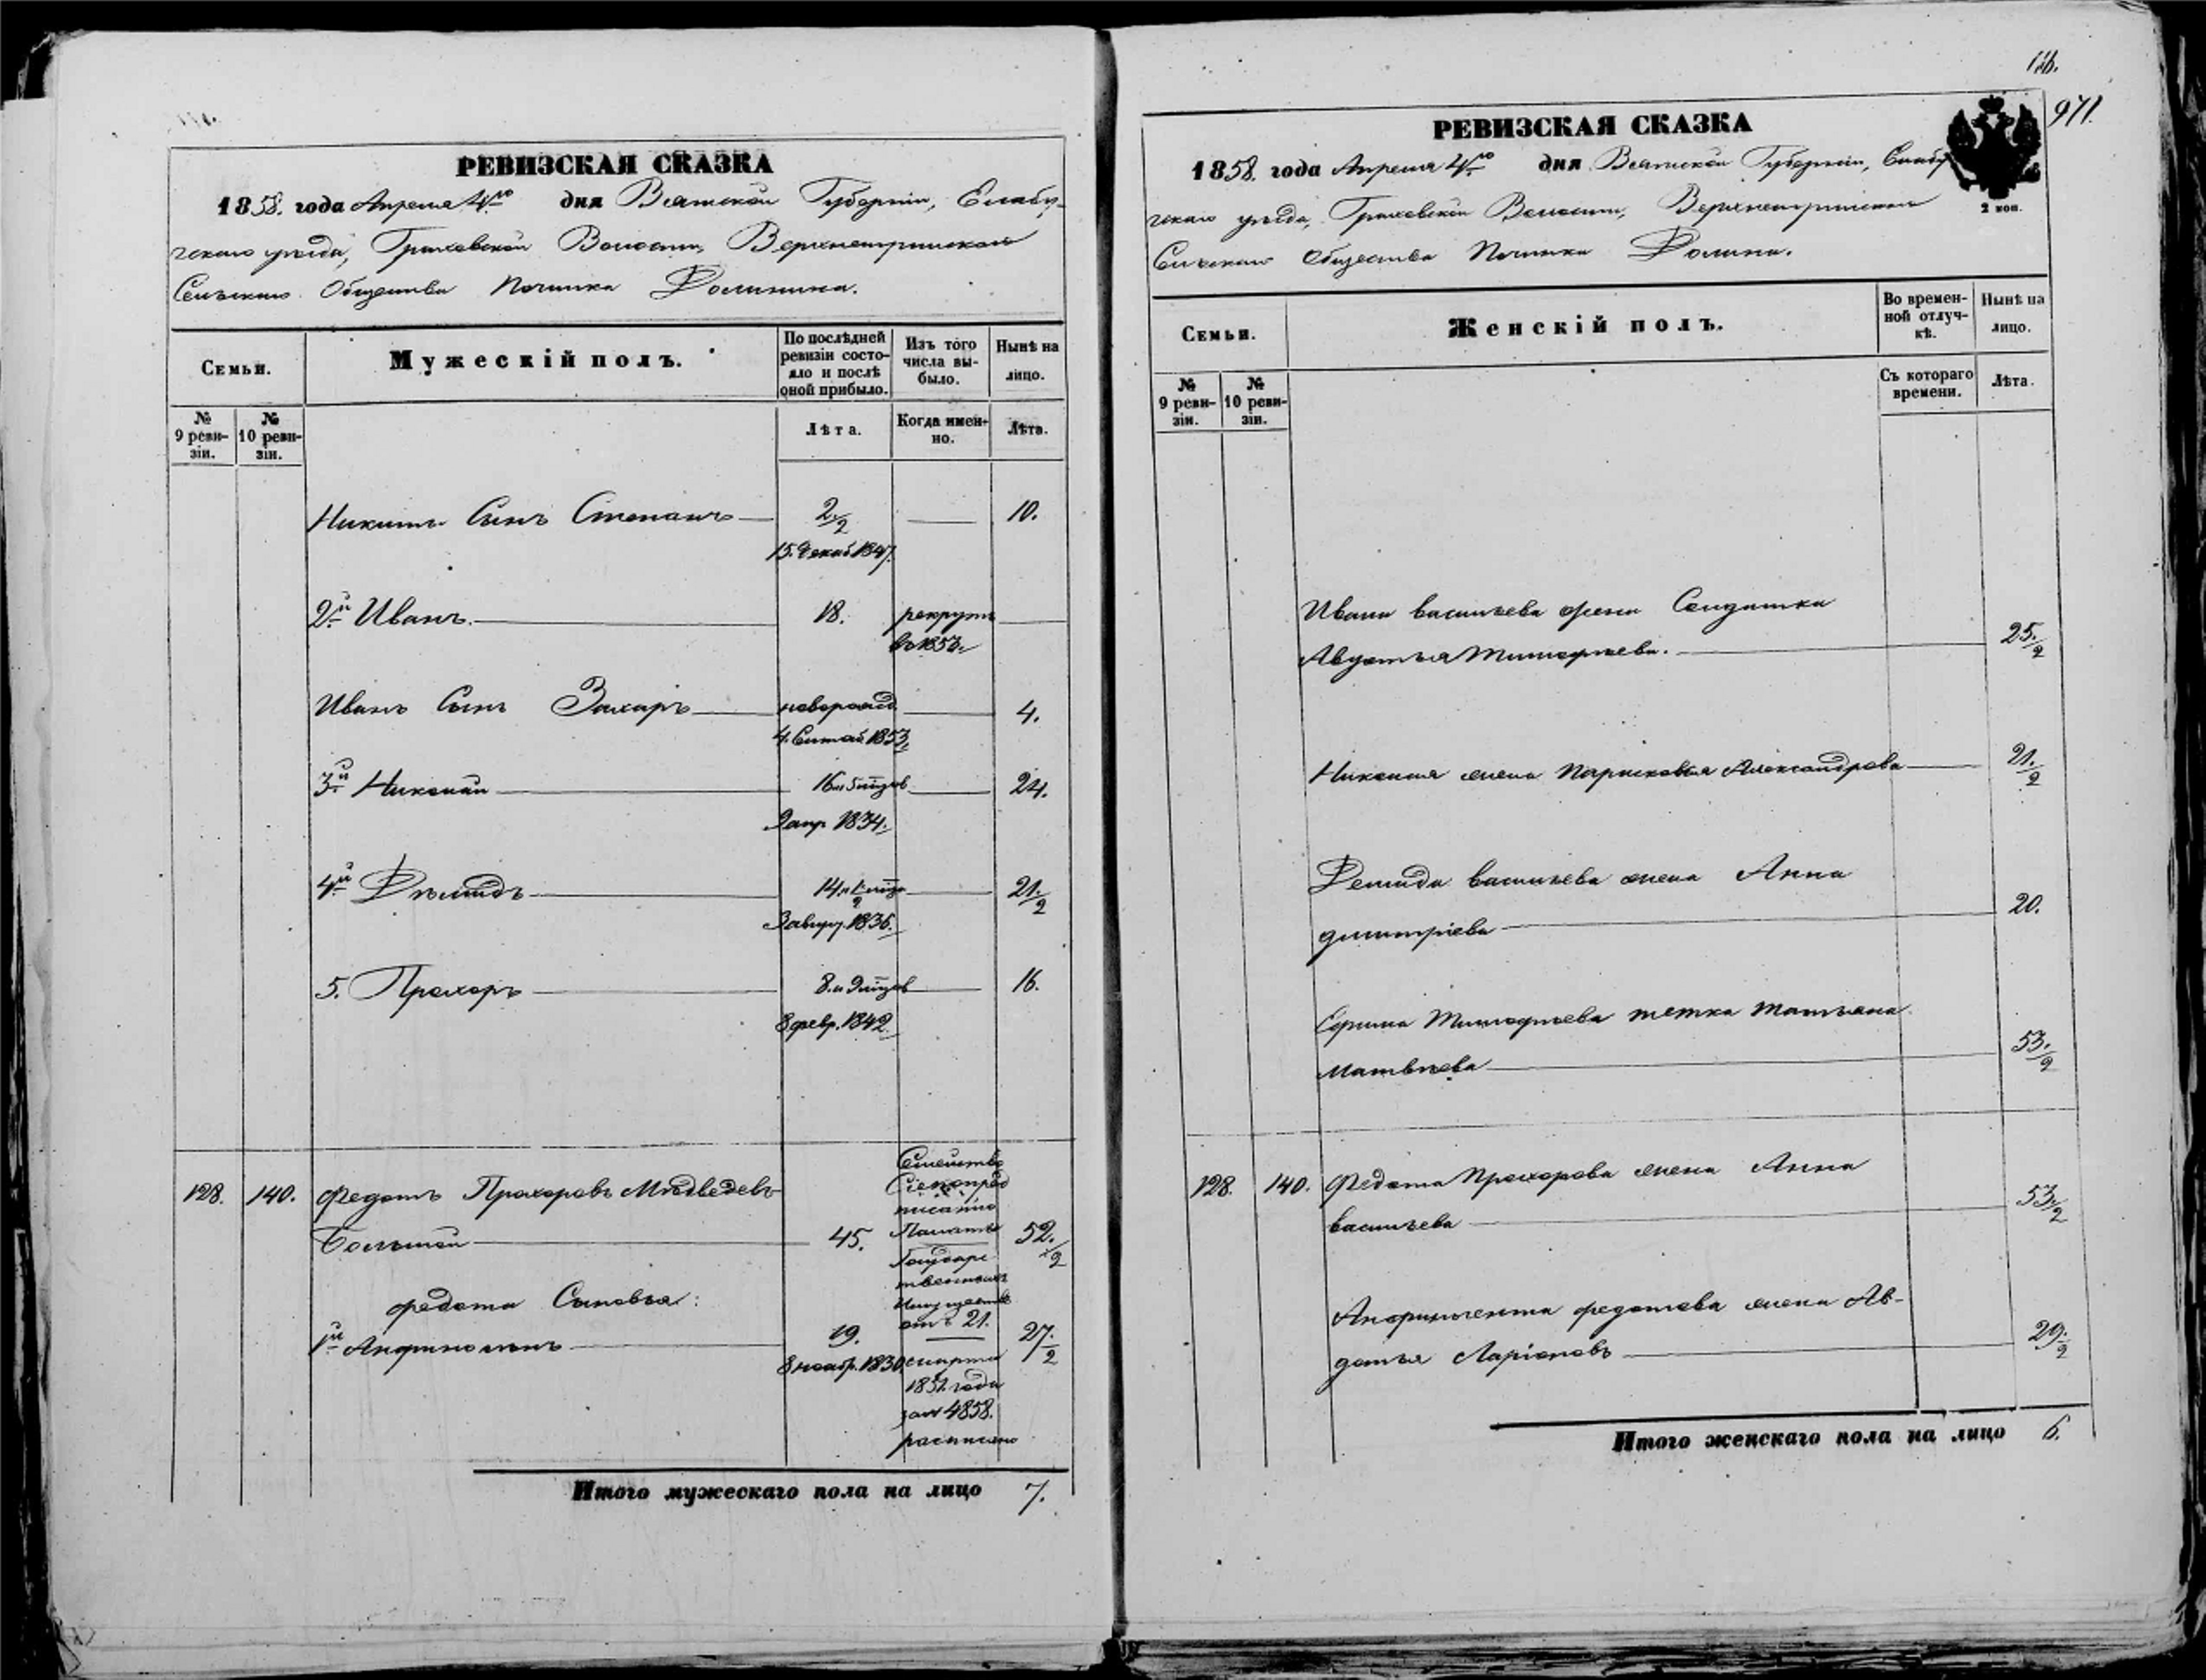 РЕВИЗСКАЯ СКАЗКА
1858. года Апреля 4го дня Вятской Губерніи, Елабу-
гскаго уѣзда, Граховской Волости,
Сельскаго Общества Починка
Семьи.
Мужескій полъ.
По послѣдней ревизіи состояло и послѣ оной прибыло.
Изъ того числа выбыло.
Нынѣ на лицо.
№ 9 ревизіи.
№ 10 ревизіи.
Лѣта.
Когда именно.
Лѣта.
Никиты Сынъ Степанъ 2/2 10.
15. Декаб 1847.
2й Иванъ. 18. рекрутъ
въ 1853.
Иванъ Сынъ Захаръ новорожд 4.
4. Сентяб 1853.
3й Николай 24.
1834.
4й Демидъ 21./2
3 авгус. 1836.
5. Прохоръ 8. и 9 мѣсцов 16.
8 февр. 1842.
128. 140. Федотъ Прохоровъ Мѣдведевъ
Большой 45. 52./2
Федота Сыновья:
1й Анфиногенъ 19. 27./2
8 ноябр. 1830
Семейство
Сіе по пред
писанію
Палаты
Государс
твенныхъ
Имуществ
отъ 21.
марта
1851 года
за № 4858.
расписано
Итого мужескаго пола на лицо 7.
971.
РЕВИЗСКАЯ СКАЗКА
2 коп.
1858. года Апреля 4го дня Вятской Губерніи, Елабу
гскаго уѣзда, Граховской Волости,
Сельскаго Общества Починка
Семьи.
Женскій полъ.
Во временной отлучкѣ.
Нынѣ на лицо.
№ 9 ревизіи.
№ 10 ревизіи.
Съ котораго времени.
Лѣта.
Ивана васильева жена Солдатка
Авдотья Тимофѣева. 25./2
Николая жена Парасковья Александрова 21./2
Демида васильева жена Анна
дмитріева 20.
Тимофѣева тетка Татьяна
Матвѣева 53./2
128. 140. Федота Прохорова жена Анна
васильева 53/2
Анфиногента федотова жена Ав-
дотья Ларіоновъ 29./2
Итого женскаго пола на лицо 6.